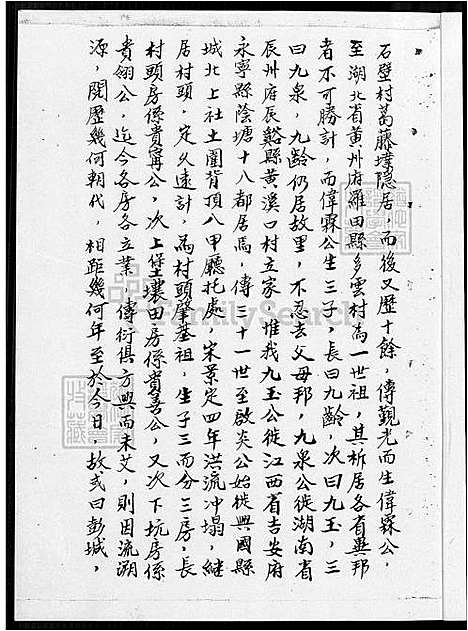 石壁村葛藤墣隱居，而後又歷十餘，傳觀光而生偉霖公，
至湖北省黃州府羅田縣多雲村為一世祖，其析居各省異邦
者不可勝計，而偉霖公生三子，長曰九齡，次曰九玉，三
曰九泉，九齡仍居故里，不忍去父母邦，九泉公徙湖南省
辰州府辰谿縣黃溪口村立家，惟我九玉公徙江西省吉安府
永寧縣蔭塘十八都居焉，傳三十一世至啟炎公始徙興國縣
城北上社土圍背頂八甲廳托處，宋景定四年洪流冲塌，繼
居村頭，定久遠計，為村頭肇基祖，生子三而分三房，長
村頭房係貴寗公，次上堡壤田房係貴善公，又次下坑房係
貴翎公，迄今各房各立業，傳衍俱方興而未艾，則因流溯
源，閱歷幾何朝代，相距幾何年至於今日，故或曰彭城，
FamilySearch